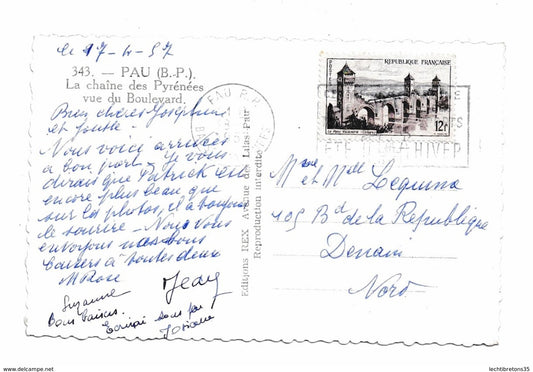 le 17-4-57
343. — PAU (B.-P.).
La chaîne des Pyrénées
vue du Boulevard.
Bien chères Joséphine
et
Nous voici arrivées
à bon port. Je vous
dirais que Patrick est
encore plus beau que
sur les photos, il a toujours
le sourire - Nous vous
envoyons nos bons
baisers à toutes deux
M Rose
Suzanne
Bons baisers.
Jean
Josiane
Editions REX, Avenue des Lilas-Pau
Reproduction interdite
PAU R.P.
POSTES
REPUBLIQUE FRANÇAISE
12f
ETE HIVER
Mme et Mlle Lequina
105 Bd de la République
Denain
Nord
www.delcampe.net
lechtibretons35